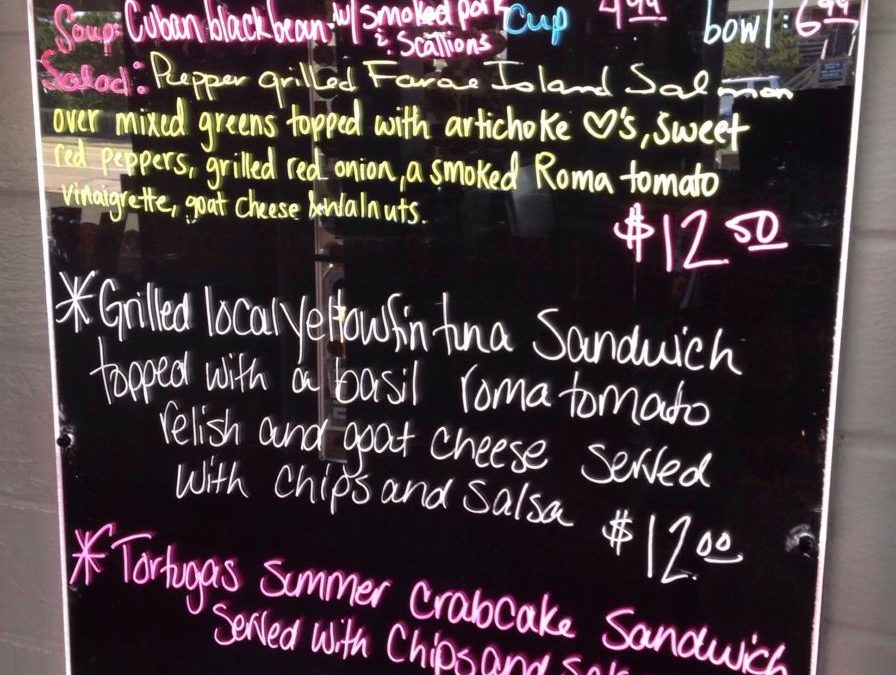 Soup: Cuban black bean w/ smoked pork Cup 4.99 bowl: 6.99
& Scallions
Salad: Pepper grilled Faroe Island Salmon
over mixed greens topped with artichoke ♡'s, sweet
red peppers, grilled red onion, a smoked Roma tomato
vinaigrette, goat cheese & walnuts.
$12.50
*Grilled local yellowfin tuna Sandwich
topped with a basil roma tomato
relish and goat cheese served
with chips and salsa $12.00
*Tortugas Summer Crabcake Sandwich
Served with Chips and